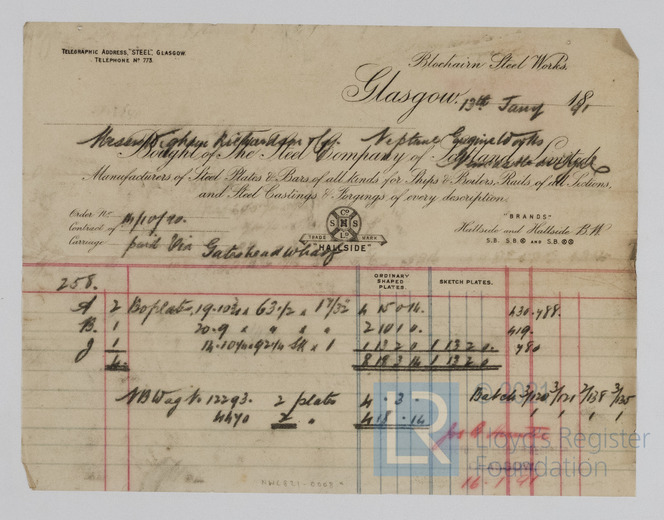 TELEGRAPHIC ADDRESS, "STEEL", GLASGOW.
TELEPHONE No 773.
Blochairn Steel Works,
Glasgow, 13th Jany 1891
Messrs Wigham Richardson & Co. Neptune Engine Works
Bought of The Steel Company of Scotland Limited
Manufacturers of Steel Plates & Bars of all kinds for Ships & Boilers, Rails of all Sections,
and Steel Castings & Forgings of every description.
Order No
Contract of 14/10/90.
Carriage paid Via Gateshead Wharf
TRADE MARK
"HALLSIDE"
"BRANDS"
Hallside and Hallside B.W
S.B. S.B. AND S.B.
ORDINARY SHAPED PLATES.
SKETCH PLATES.
258.
A 2 Bo plates 19.10 3/4 x 63 1/2 x 17/32 4 15 0 14. 430.488.
B. 1 20.9 " " " 2 10 1 0. 419.
J 1 14.10 1/4 . 92 1/4 SK x 1 1 13 2 0 1 13 2 0. 490
4. 8 18 3 14 1 13 2 0
NB Wag No 12293. 2 plates 4 . 3 . Batch 3/120 3/121 2/138 3/135
4470 2 " 4 18 . 14 1 1 1 1
16.1.91
NWC821-0063
© 2021
LR
Lloyd's Register
Foundation